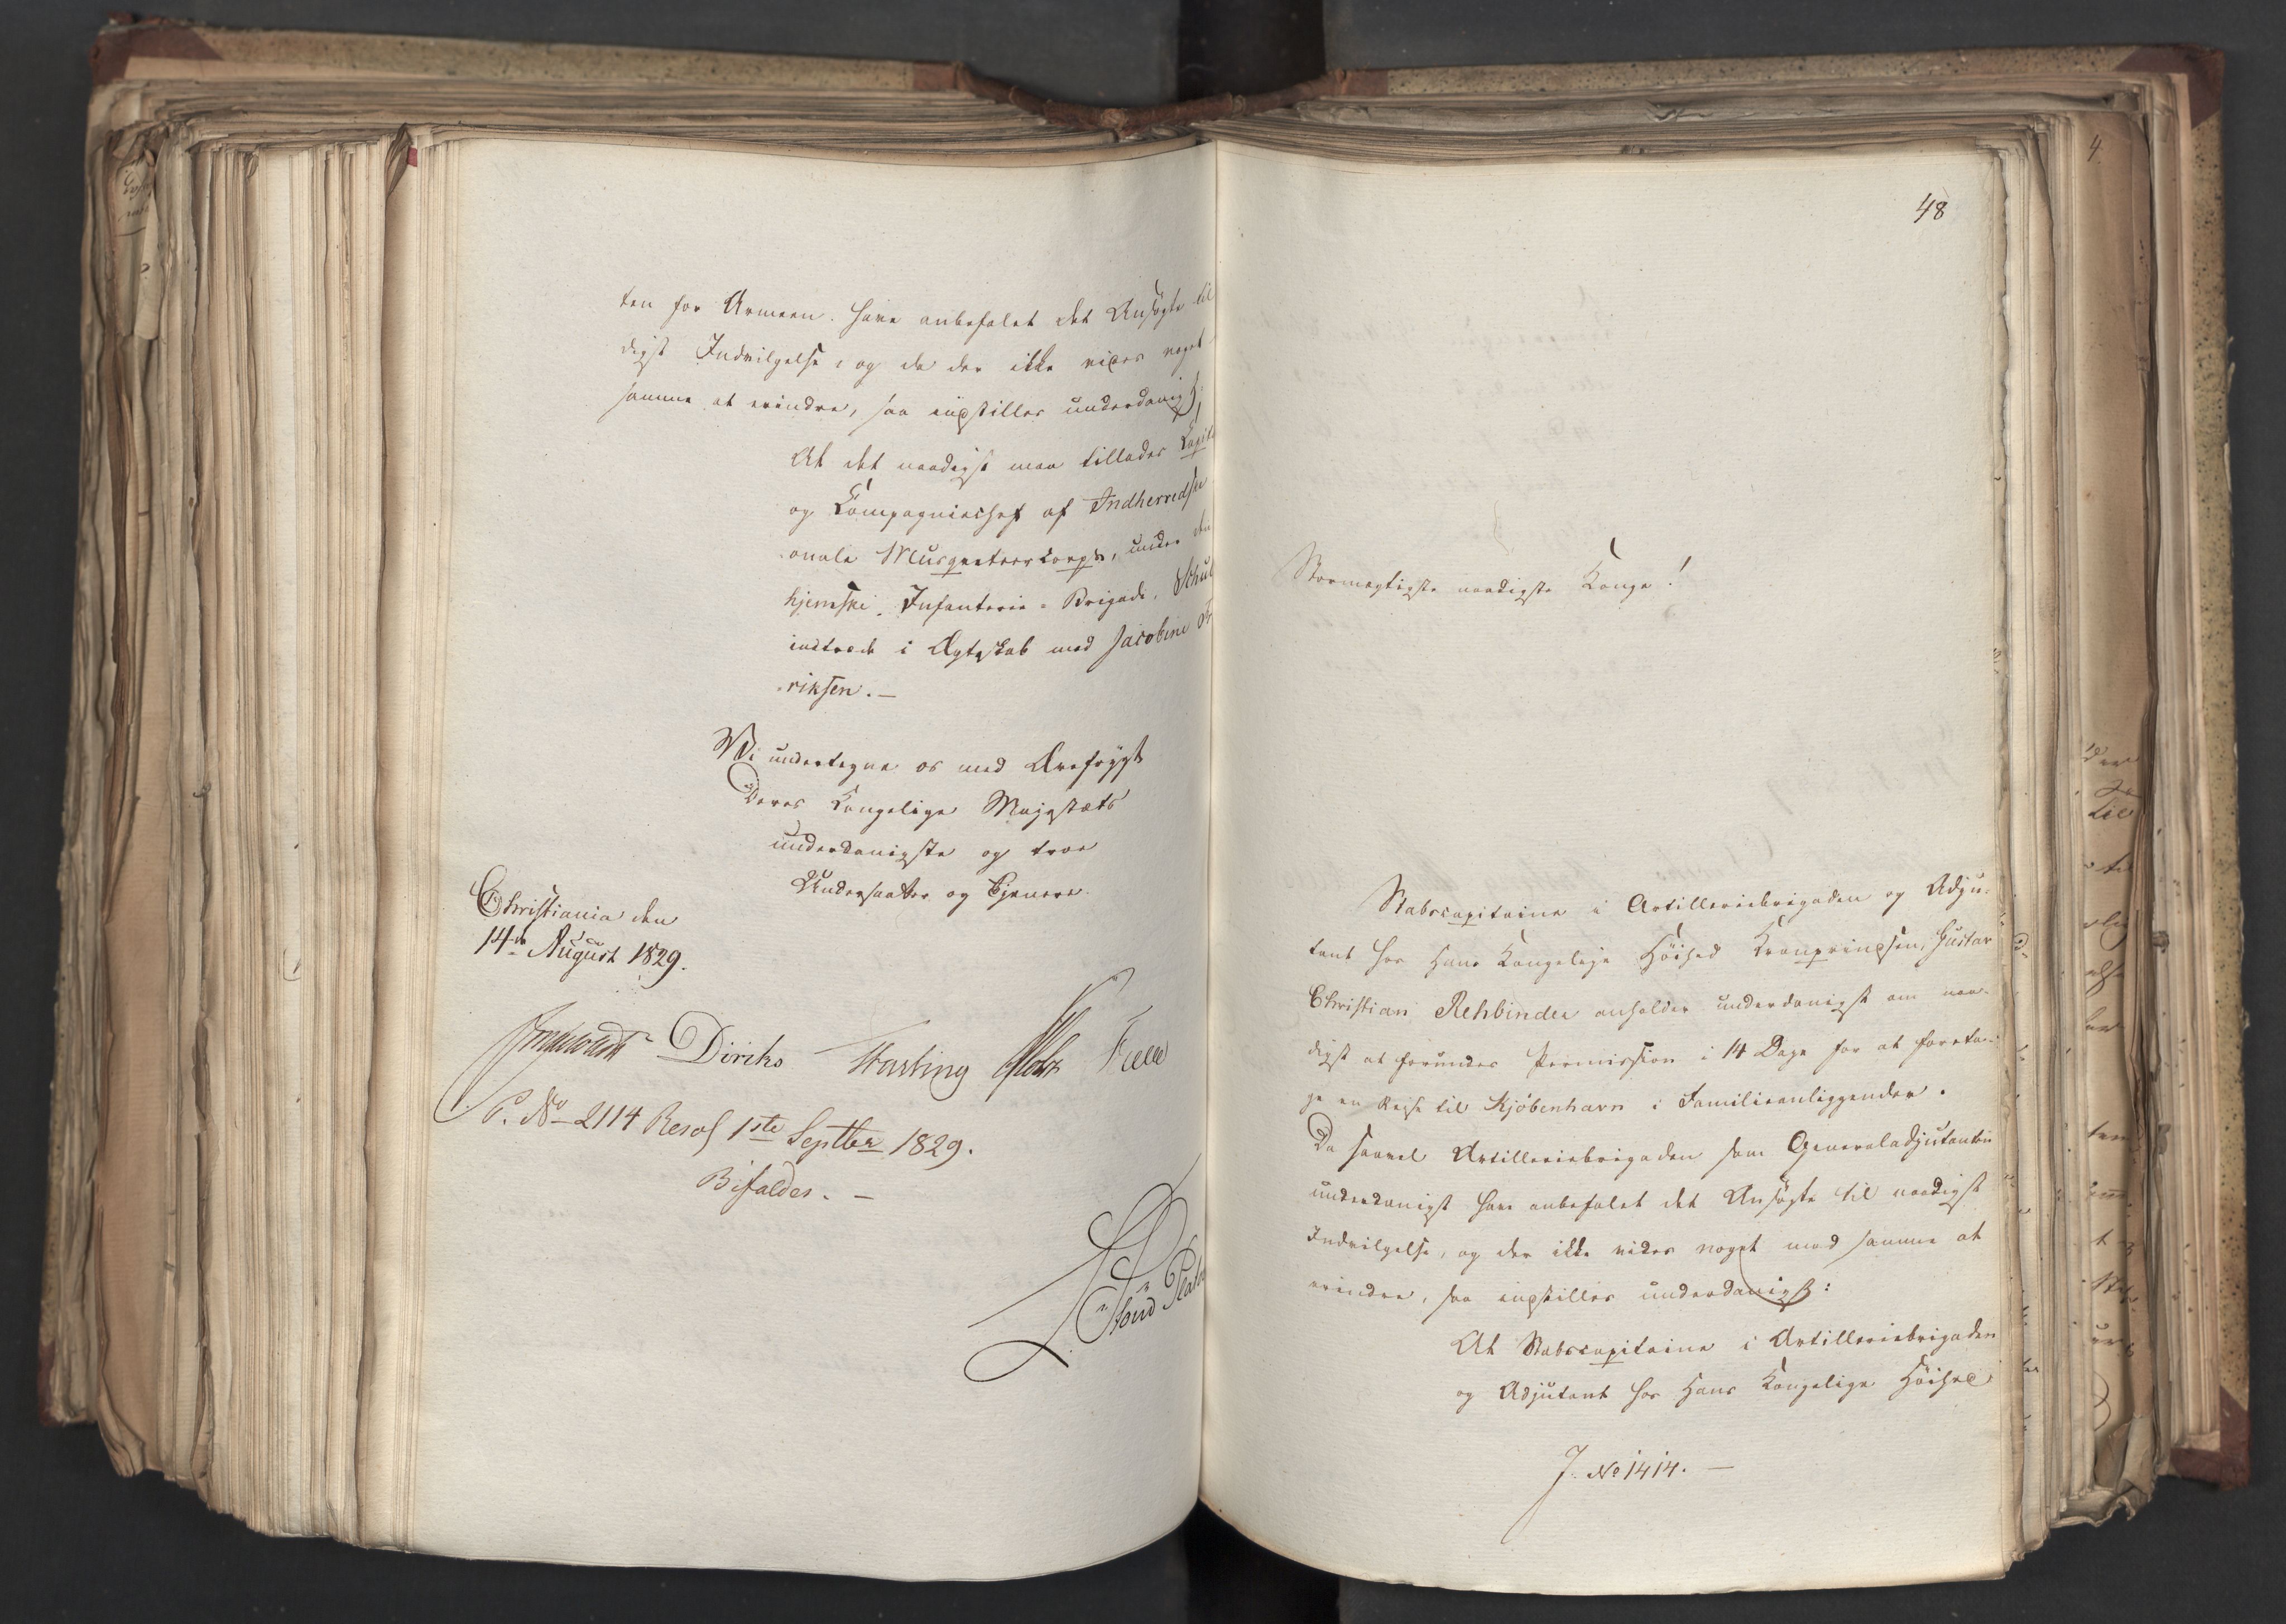 ten for Armeen have anbefalet det Ansøgte til
digst Indvilgelse, og da der ikke vides noget
samme at erindre, saa indstilles underdanigst;
At det naadigst maa tillades Capit
og Compagniechef af Indherredske
onale Musqueteercorps, under den
hjemske Infanterie-Brigade, Schul
indtræde i Ægteskab med Jacobine
riksen. —
Vi undertegne os med Ærefrygt
Deres Kongelige Majestæts
underdanigste og troe
Undersaatter og Tjenere.
Christiania den
14de August 1829.
Diriks
P. No 2114 Resol 1ste Septbr 1829.
Bifaldes. —
48
Stormægtigste naadigste Konge!
Stabscapitaine i Artilleriebrigaden og Adju-
tant hos Hans Kongelige Höihed Kronprindsen, Gustav
Christian Rehbinder anholder underdanigst om naa-
digst at forundes Permission i 14 Dage for at foreta-
ge en Reise til Kjøbenhavn i Familieanliggender.
Da saavel Artilleriebrigaden som Generaladjutanten
underdanigst have anbefalet det Ansøgte til naadigst
Indvilgelse, og der ikke vides noget mod samme at
erindre, saa indstilles underdanigst:
At Stabscapitaine i Artilleriebrigaden
og Adjutant hos Hans Kongelige Höihed
J. No 1414. —